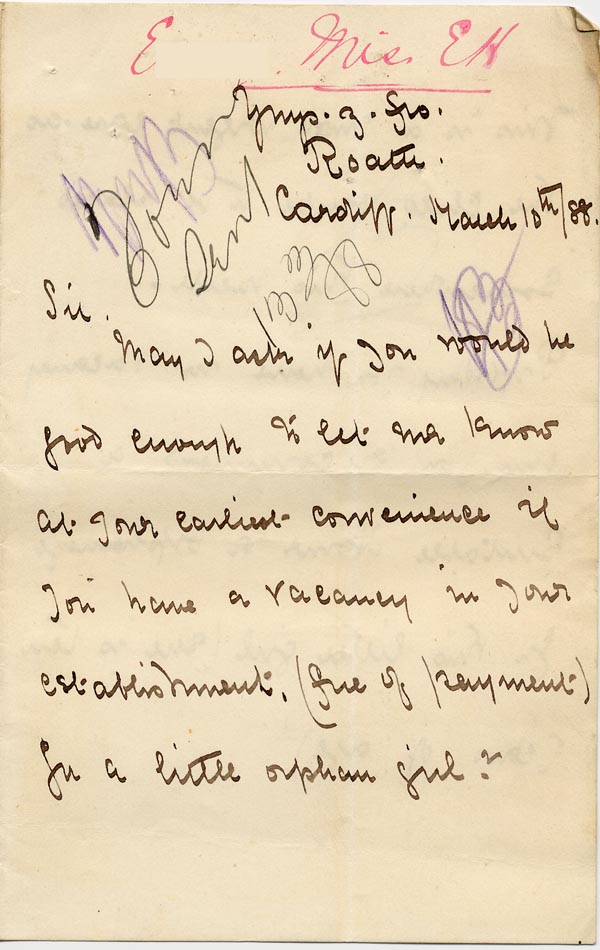 E Miss. EH
Ynys. y. Gro.
Roath.
Cardiff. March 10th/88.
Form
Sent
Sir.
May I ask if you would be
good enough to let me know
at your earliest convenience if
you have a vacancy in your
establishment, (free of payment)
for a little orphan girl?